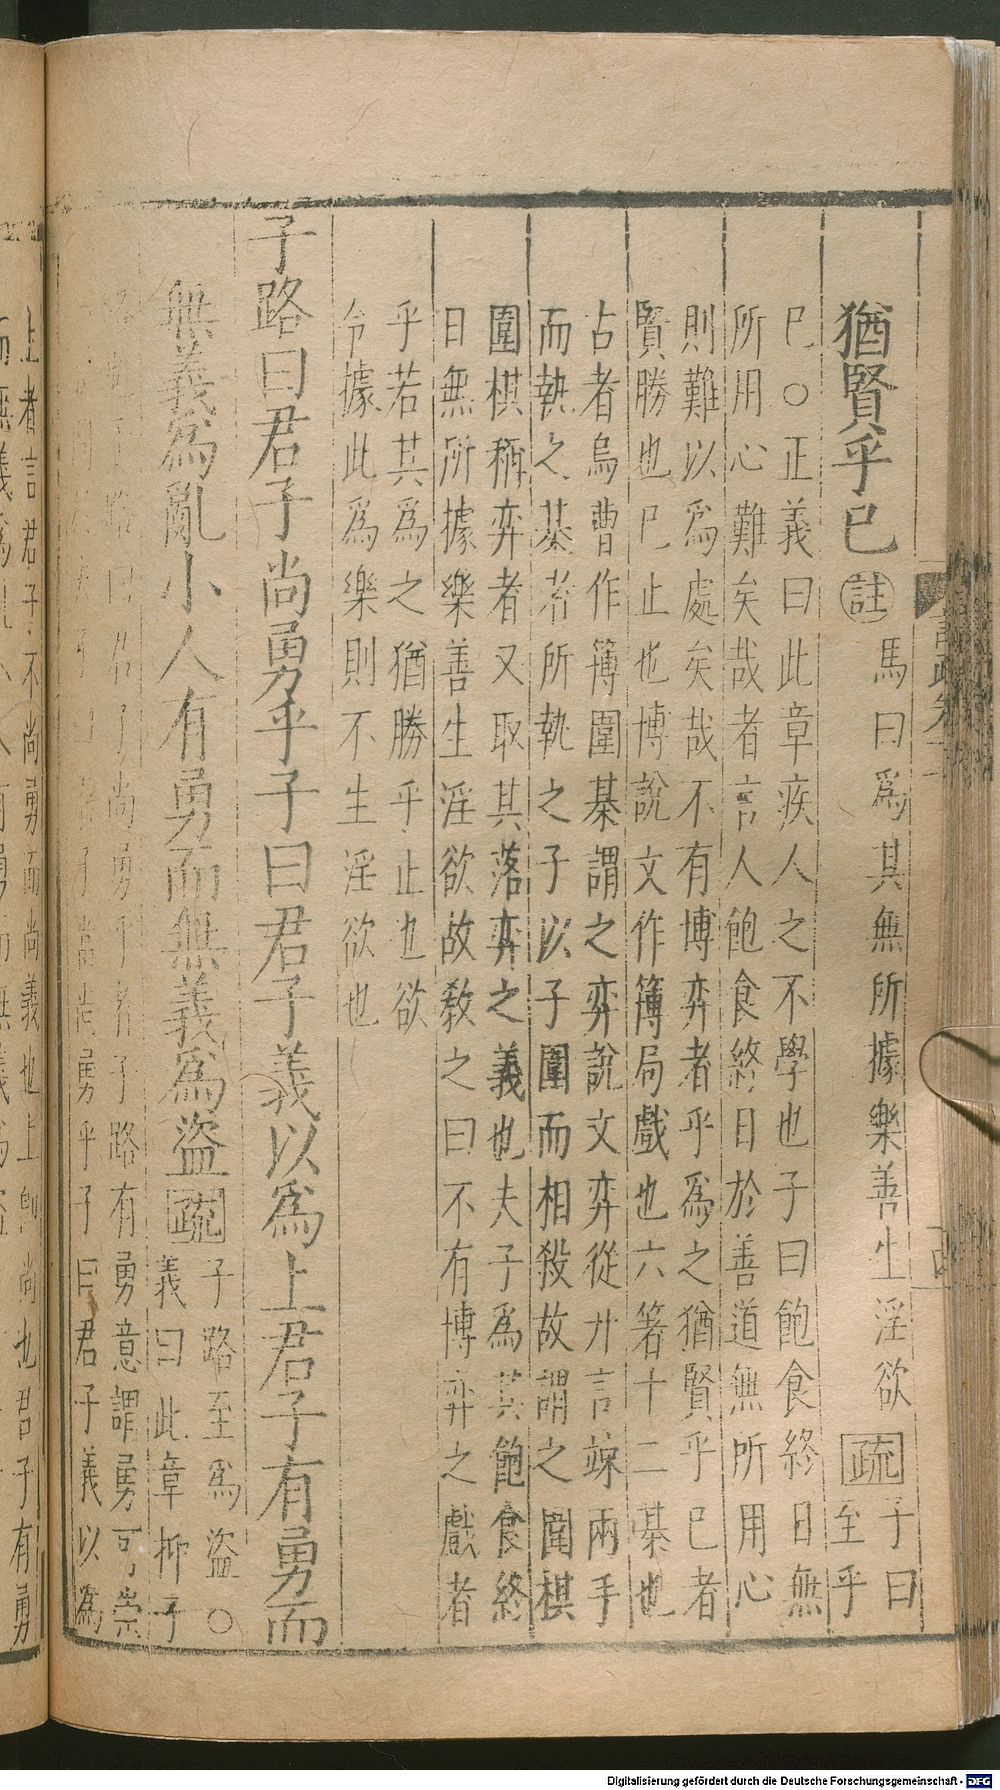 猶賢乎已
註
馬曰爲其無所據樂善生淫欲
疏
子曰
至乎
巳○正義曰此章疾人之不學也子曰飽食終日無
所用心難矣哉者言人飽食終日於善道無所用心
則難以爲處矣哉不有博弈者乎爲之猶賢乎已者
賢勝也巳止也博說文作簿局戲也六箸十二棊也
古者烏曹作簿圍棊謂之弈說文弈從廾言竦兩手
而執之棊者所執之子以子圍而相殺故謂之圍棋
圍棋稱弈者又取其落弈之義也夫子爲其飽食終
日無所據樂善生淫欲故敎之曰不有博弈之戲者
乎若其爲之猶勝乎止也欲
令據此爲樂則不生淫欲也
子路曰君子尚勇乎子曰君子義以爲上君子有勇而
無義爲亂小人有勇而無義爲盜
疏
子路至爲盜○
義曰此章抑子
子路曰君子尚勇乎者子路有勇意謂勇可崇
子當尚勇乎子曰君子義以爲
上者言君子不尚勇而尚義也上卽尚也君子有勇
而無義爲亂小人有勇而無義爲盜
Digitalisierung gefördert durch die Deutsche Forschungsgemeinschaft - DFG